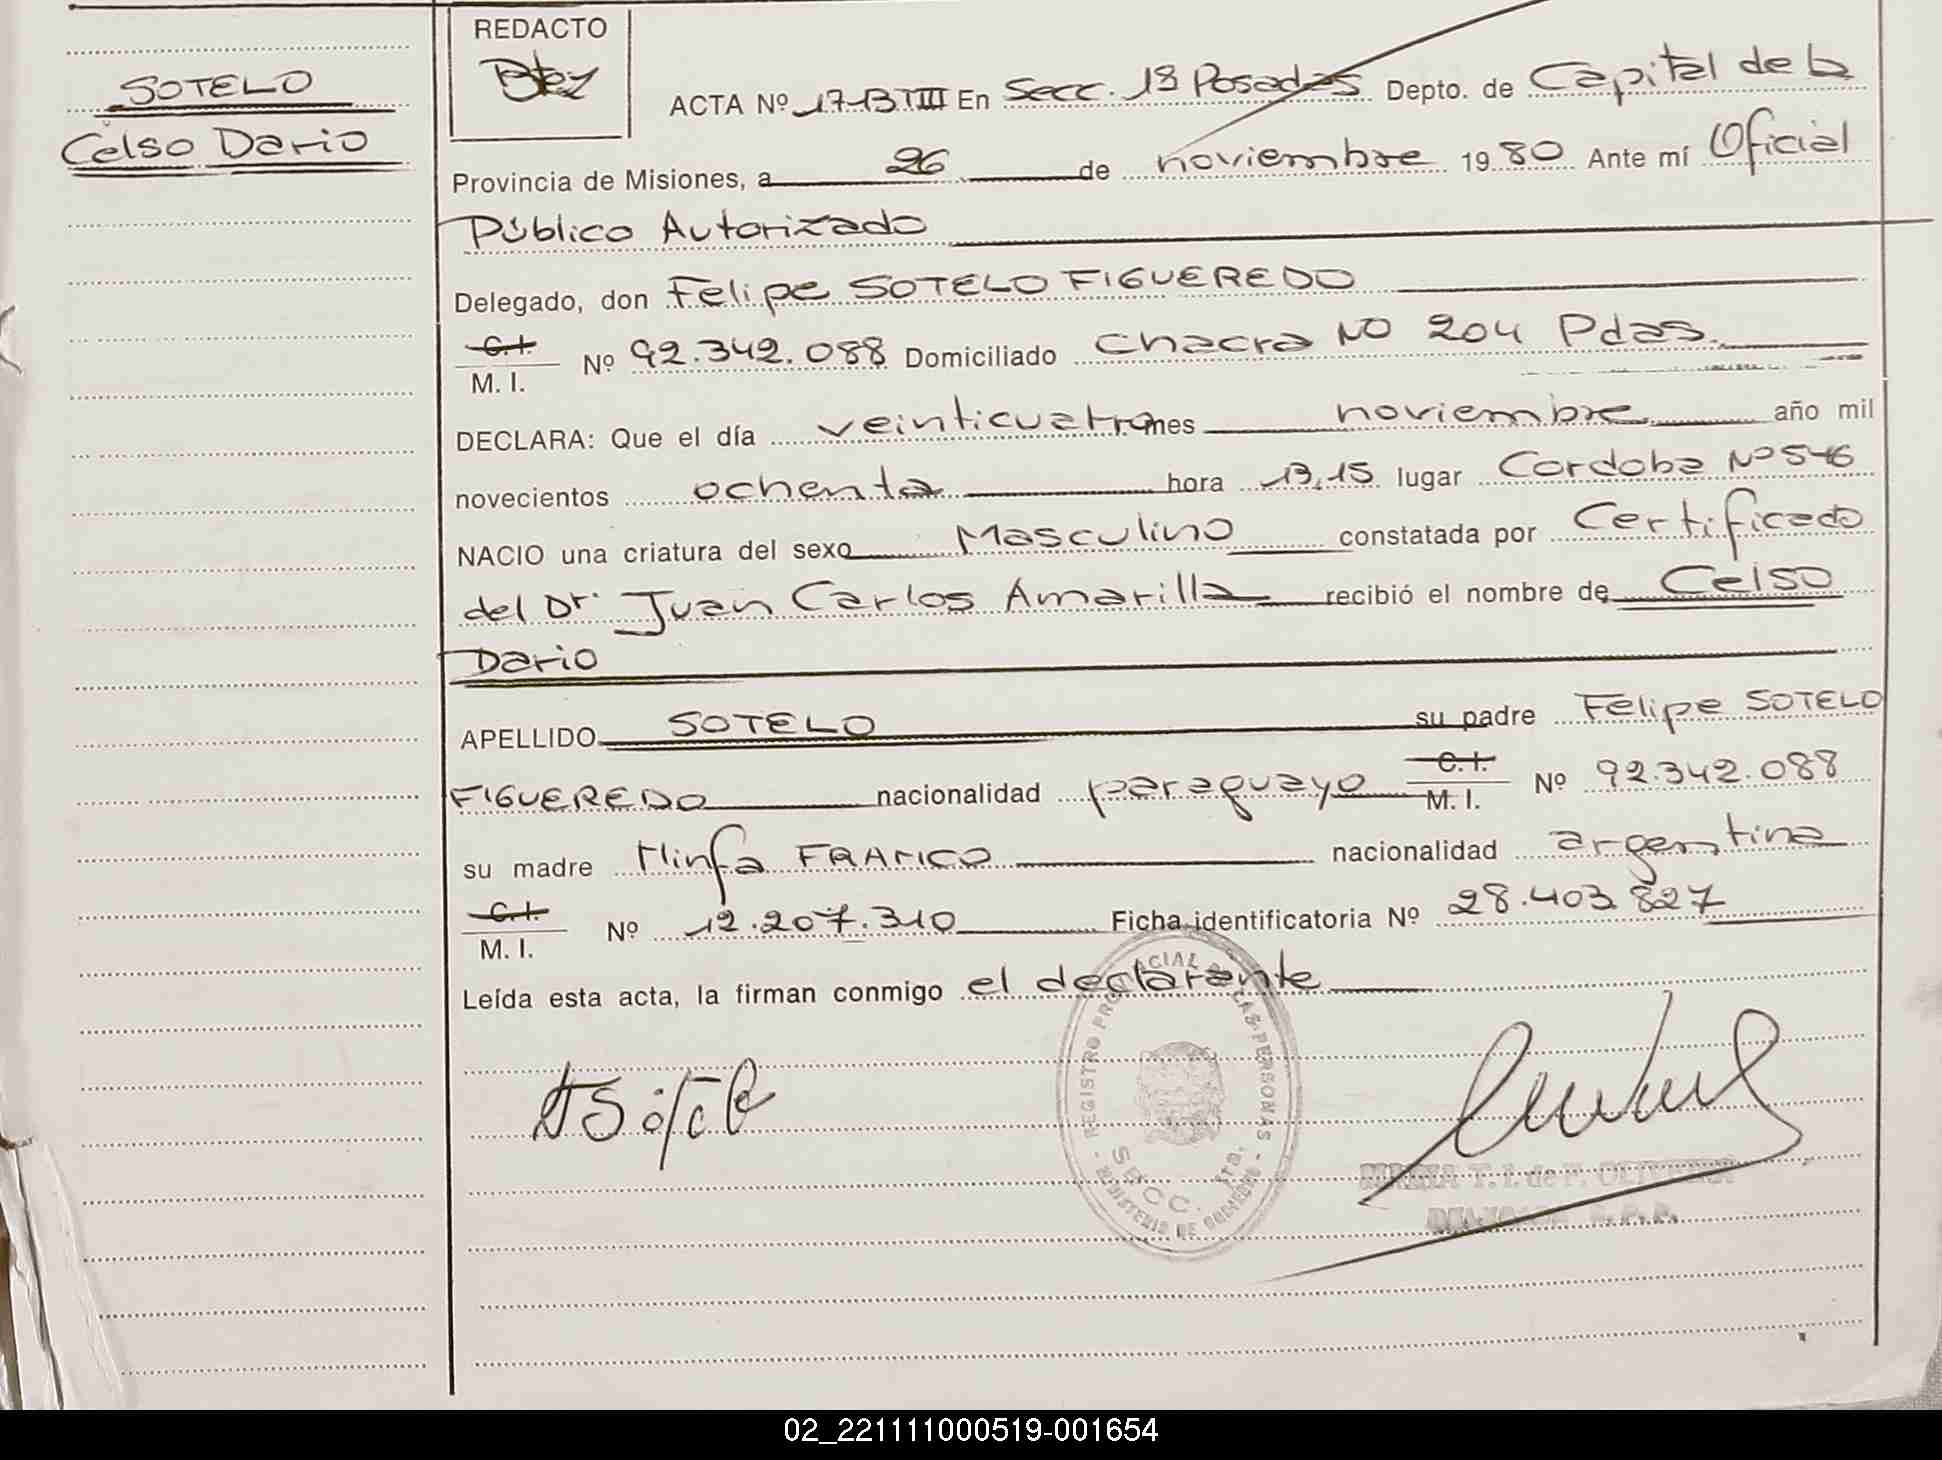 REDACTO
SOTELO
Celso Dario
ACTA Nº 17-B TIII En Secc. 1ª Posadas Depto. de Capital de la
Provincia de Misiones, a 26 de noviembre 1980 Ante mí Oficial
Público Autorizado
Delegado, don Felipe SOTELO FIGUEREDO
C.I. M. I. Nº 92.342.088 Domiciliado Chacra Nº 204 Pdas.
DECLARA: Que el día veinticuatro mes noviembre año mil
novecientos ochenta hora 13,15 lugar Cordoba Nº 546
NACIO una criatura del sexo Masculino constatada por Certificado
del Dr. Juan Carlos Amarilla recibió el nombre de Celso
Dario
APELLIDO SOTELO su padre Felipe SOTELO
FIGUEREDO nacionalidad paraguayo C.I. M. I. Nº 92.342.088
su madre Ninfa FRANCO nacionalidad argentina
C.I. M. I. Nº 12.207.310 Ficha identificatoria Nº 28.403.827
Leída esta acta, la firman conmigo el declarante
REGISTRO LAS PERSONAS
SECC.
MINISTERIO DE
MARIA T. I. de F. OLIVEIRA
02_221111000519-001654